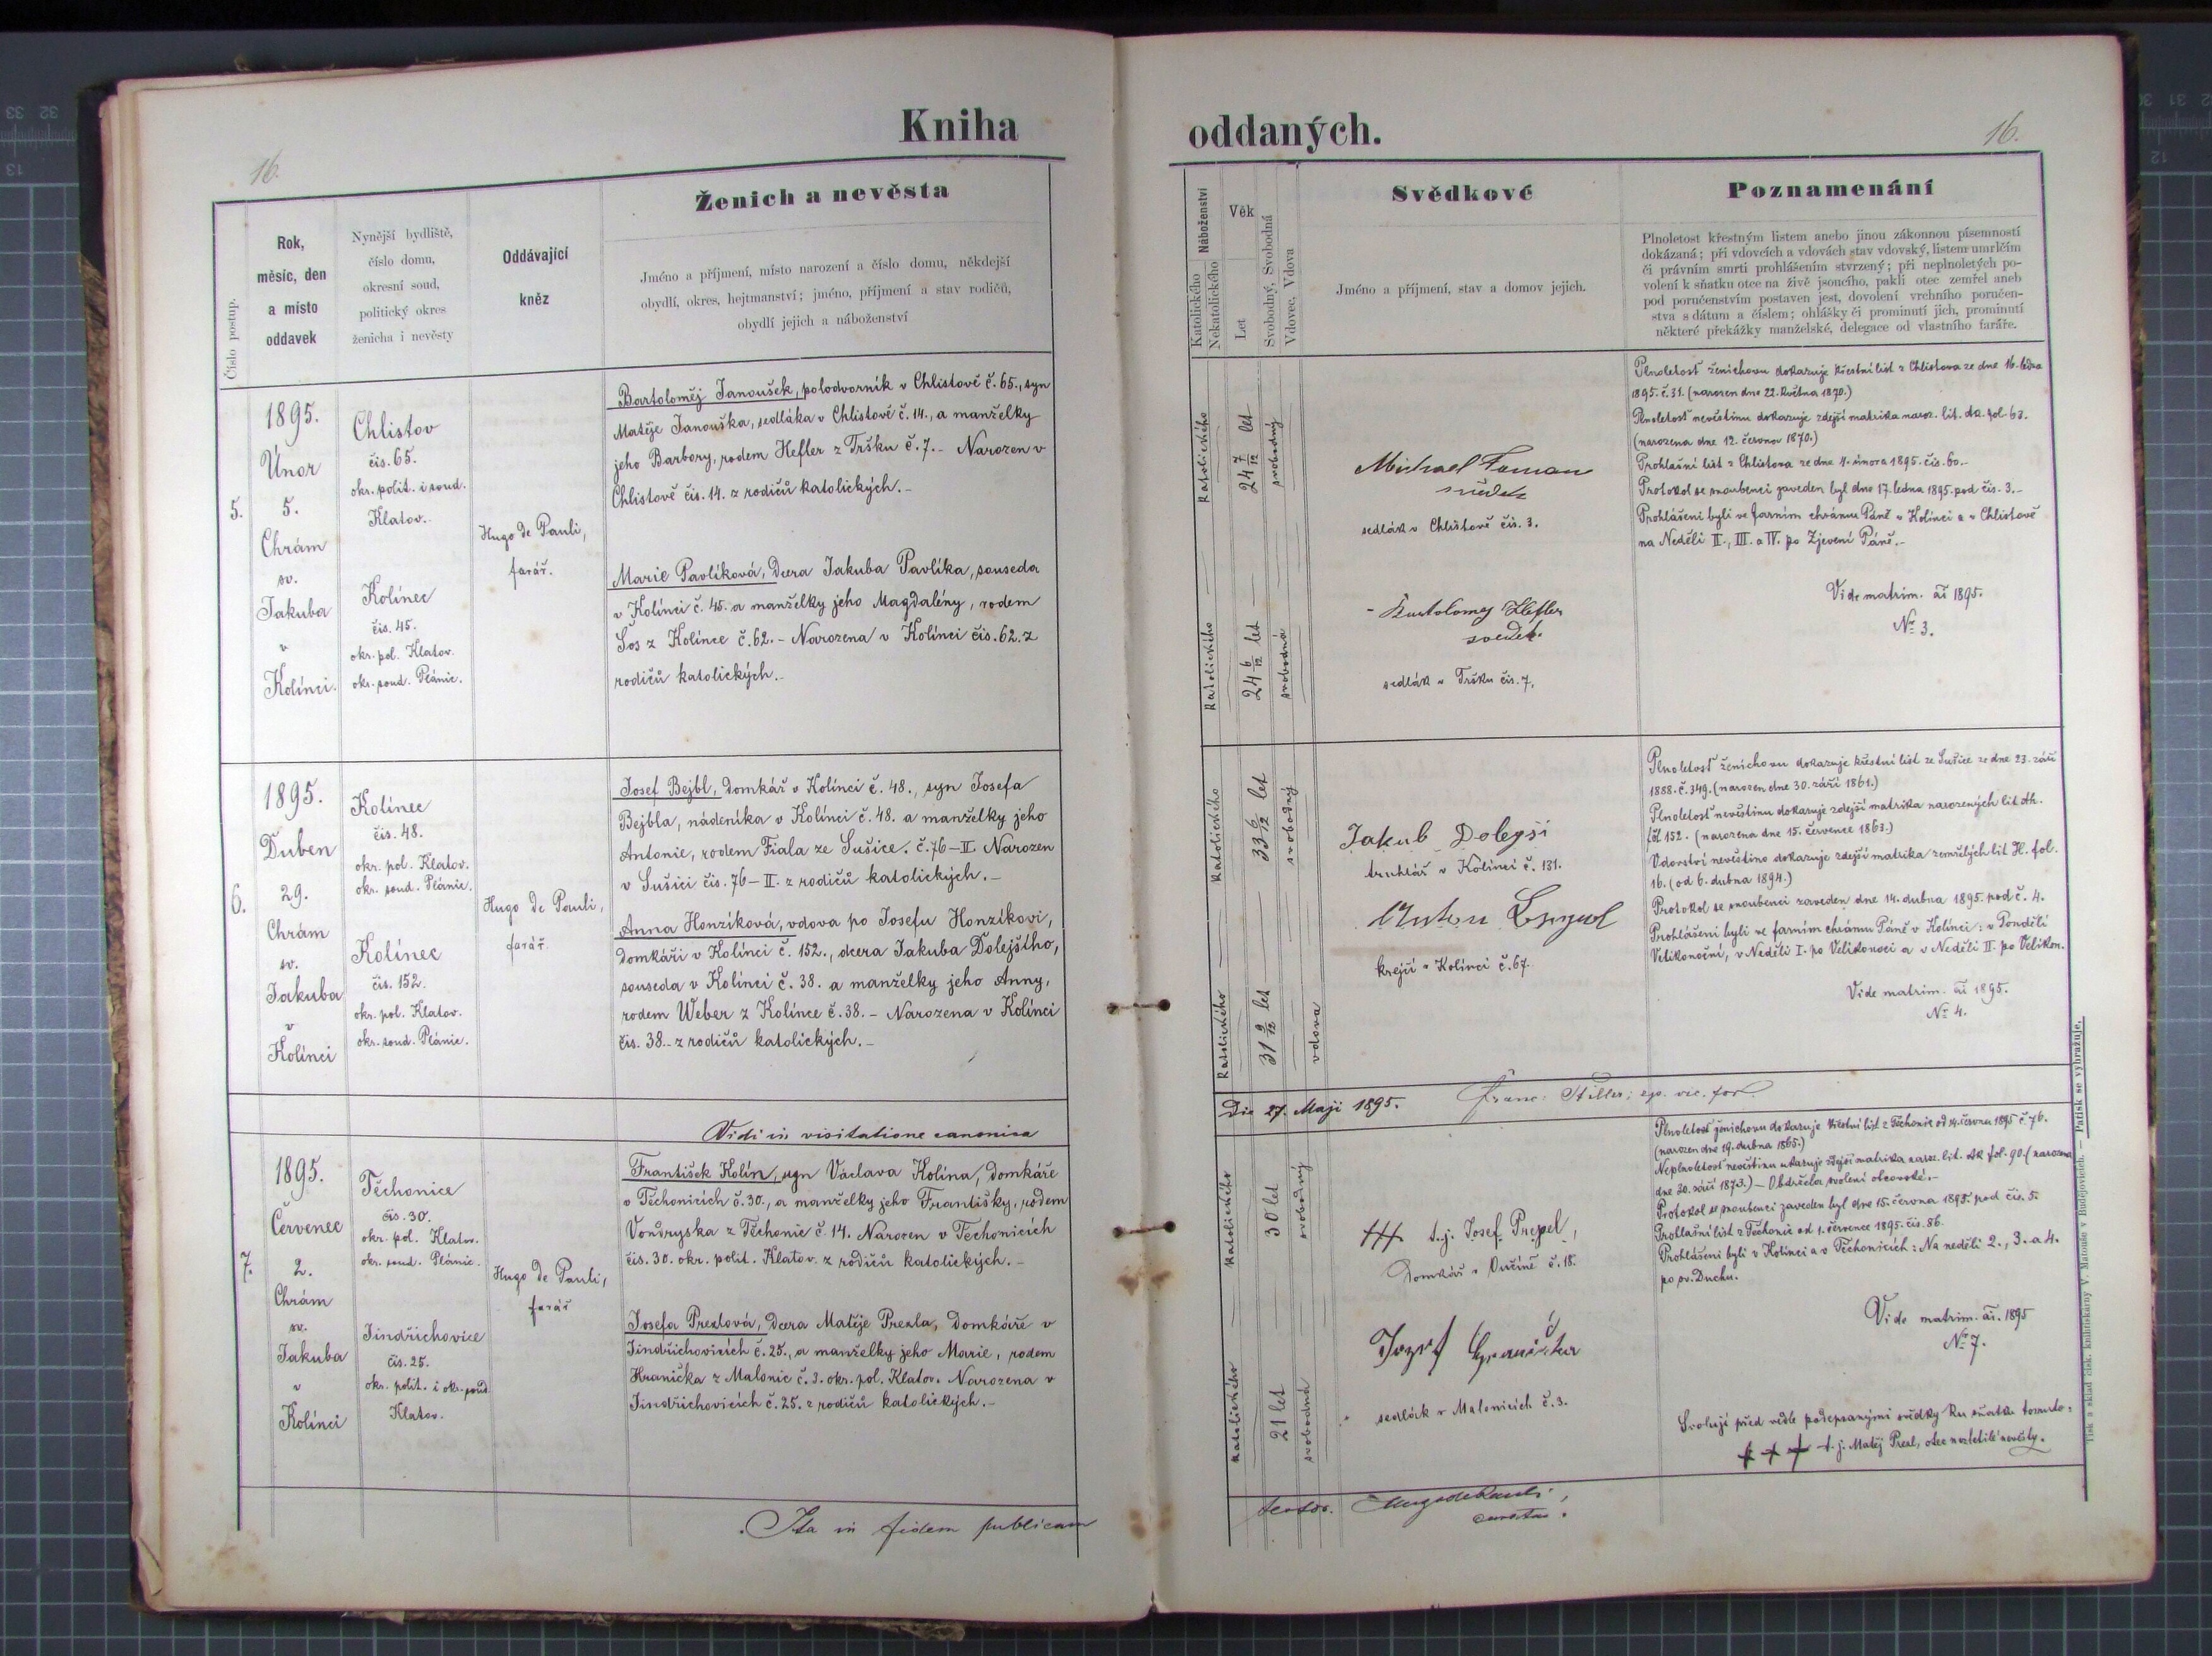 Kniha
oddaných.
16.
16.
Číslo postup.
Rok,
měsíc, den
a místo
oddavek
Nynější bydliště,
číslo domu,
okresní soud,
politický okres
ženicha i nevěsty
Oddávající
kněz
Ženich a nevěsta
Jméno a příjmení, místo narození a číslo domu, někdejší
obydlí, okres, hejtmanství; jméno, příjmení a stav rodičů,
obydlí jejich a náboženství
Náboženství
Katolického
Nekatolického
Věk
Let
Svobodný, Svobodná
Vdovec, Vdova
Svědkové
Jméno a příjmení, stav a domov jejich.
Poznamenání
Plnoletost křestným listem anebo jinou zákonnou písemností
dokázaná; při vdovcích a vdovách stav vdovský, listem umrlčím
či právním smrti prohlášením stvrzený; při neplnoletých po-
volení k sňatku otce na živě jsoucího, pakli otec zemřel aneb
pod poručenstvím postaven jest, dovolení vrchního poručen-
stva s dátum a číslem; ohlášky či prominutí jich, prominutí
některé překážky manželské, delegace od vlastního faráře.
5.
1895.
Únor
5.
Chrám
sv.
Jakuba
v
Kolínci.
Chlistov
čis. 65.
okr. polit. i soud.
Klatov.
Kolinec
čis. 45.
okr. pol. Klatov.
okr. soud. Plánic.
Hugo de Pauli,
farář.
Bartoloměj Janoušek, polodvorník v Chlistově č. 65., syn
Matěje Janouška, sedláka v Chlistově č. 14., a manželky
jeho Barbory, rodem Hefler z Tršku č. 7.- Narozen v
Chlistově čis. 14. z rodičů katolických.-
Marie Pavlíková, dcera Jakuba Pavlíka, souseda
v Kolínci č. 45. a manželky jeho Magdalény, rodem
Šos z Kolince č. 62.- Narozena v Kolínci čis. 62. z
rodičů katolických.-
Katolického
24 7/12 let
svobodný
Katolického
24 6/12 let
svobodná
Michael Toman
svědek
sedlák v Chlistově čis. 3.
Bartolomej Hefler
svědek.
sedlák v Tršku čis. 7.
Plnoletost ženichovu dokazuje křestní list z Chlistova ze dne 16. ledna
1895. č. 31. (narozen dne 22. května 1870.)
Plnoletost nevěstinu dokazuje zdejší matrika naroz. lit. dk. fol. 63.
(narozena dne 12. června 1870.)
Prohlašní list z Chlistova ze dne 4. února 1895. čis. 60.-
Protokol se snoubenci zaveden byl dne 17. ledna 1895. pod čis. 3.-
Prohlášeni byli ve farním chrámu Páně v Kolínci a v Chlistově
na Neděli II., III. a IV. po Zjevení Páně.-
Vide matrim. ai 1895.
No 3.
6.
1895.
Duben
29.
Chrám
sv.
Jakuba
v
Kolínci
Kolínec
čis. 48.
okr. pol. Klatov.
okr. soud. Plánic.
Kolínec
čis. 152.
okr. pol. Klatov.
okr. soud. Plánic.
Hugo de Pauli,
farář.
Josef Bejbl, domkář v Kolínci č. 48., syn Josefa
Bejbla, nádeníka v Kolínci č. 48. a manželky jeho
Antonie, rodem Fiala ze Sušice. č. 76-II. Narozen
v Sušici čis. 76-II. z rodičů katolických.-
Anna Honzíková, vdova po Josefu Honzíkovi,
domkáři v Kolínci č. 152., dcera Jakuba Dolejšího,
souseda v Kolínci č. 38. a manželky jeho Anny,
rodem Weber z Kolínce č. 38.- Narozena v Kolínci
čis. 38.- z rodičů katolických.-
Katolického
33 6/12 let
svobodný
Katolického
31 9/12 let
vdova
Jakub Dolejší
truhlář v Kolínci č. 131.
Anton
krejčí v Kolínci č. 67.
Plnoletost ženichovu dokazuje křestní list ze Sušice ze dne 23. září
1888. č. 349. (narozen dne 30. září 1861.)
Plnoletost nevěstinu dokazuje zdejší matrika narozených lit. dh.
fol 152. (narozena dne 15. července 1863.)
Vdovství nevěstino dokazuje zdejší matrika zemřelých lit H. fol.
16. (od 6. dubna 1894.)
Protokol se snoubenci zaveden dne 14. dubna 1895. pod č. 4.
Prohlášeni byli ve farním chrámu Páně v Kolínci: v Pondělí
Velikonoční, v Neděli I. po Velikonoci a v Neděli II. po Velikon.
Vide matrim. ai 1895.
No 4.
Vidi in visitatione canonica
Die 27. Maji 1895.
Franc: Stiller; ep. vic. for.
7.
1895.
Červenec
2.
Chrám
sv.
Jakuba
v
Kolínci
Těchonice
čis. 30.
okr. pol. Klatov.
okr. soud. Plánic.
Jindřichovice
čis. 25.
okr. polit. i okr. soud.
Klatov.
Hugo de Pauli,
farář
František Kolín, syn Václava Kolína, domkáře
v Těchonicích č. 30., a manželky jeho Františky, rodem
Vondryska z Těchonic č. 14. Narozen v Těchonicích
čis. 30. okr. polit. Klatov. z rodičů katolických.-
Josefa Prexlová, dcera Matěje Prexla, domkáře v
Jindřichovicích č. 25., a manželky jeho Marie, rodem
Hranička z Malonic č. 3. okr. pol. Klatov. Narozena v
Jindřichovicích č. 25. z rodičů katolických.-
Katolického
30 let
svobodný
Katolického
21 let
svobodná
+++ t. j. Josef Prexel,
domkář v č. 18.
Jozef Hranička
sedlák v Malonicích č. 3.
Plnoletost ženichovu dokazuje křestní list z Těchonic od 14. června 1895 č. 76.
(narozen dne 19. dubna 1865.)
Neplnoletost nevěstinu ukazuje zdejší matrika naroz. lit. dk fol. 90. (narozena
dne 20. září 1873.) - Obdržela svolení otcovské.-
Protokol se snoubenci zaveden byl dne 15. června 1895. pod čis. 5.
Prohlašní list z Těchonic od 1. července 1895. čis. 86.
Prohlášeni byli v Kolínci a v Těchonicích: Na neděli 2., 3. a 4.
po sv. Duchu.
Vide matrim. ai. 1895
No 7.
Svoluji před vedle podepsanými svědky ku sňatku tomuto:
+ + + t. j. Matěj Prexl, otec nezletilé nevěsty.
Ita in fidem publicam
testor. Hugo de Pauli,
curatus.
Tisk a sklad císk. knihtiskárny V. Matouše v Budějovicích. — Patisk se vyhražuje.